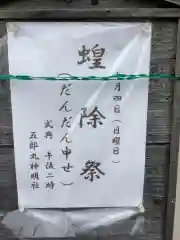 月四日(日曜日)
蝗除祭
(だんだん申せ)
式典 午後二時
五郎丸神明社